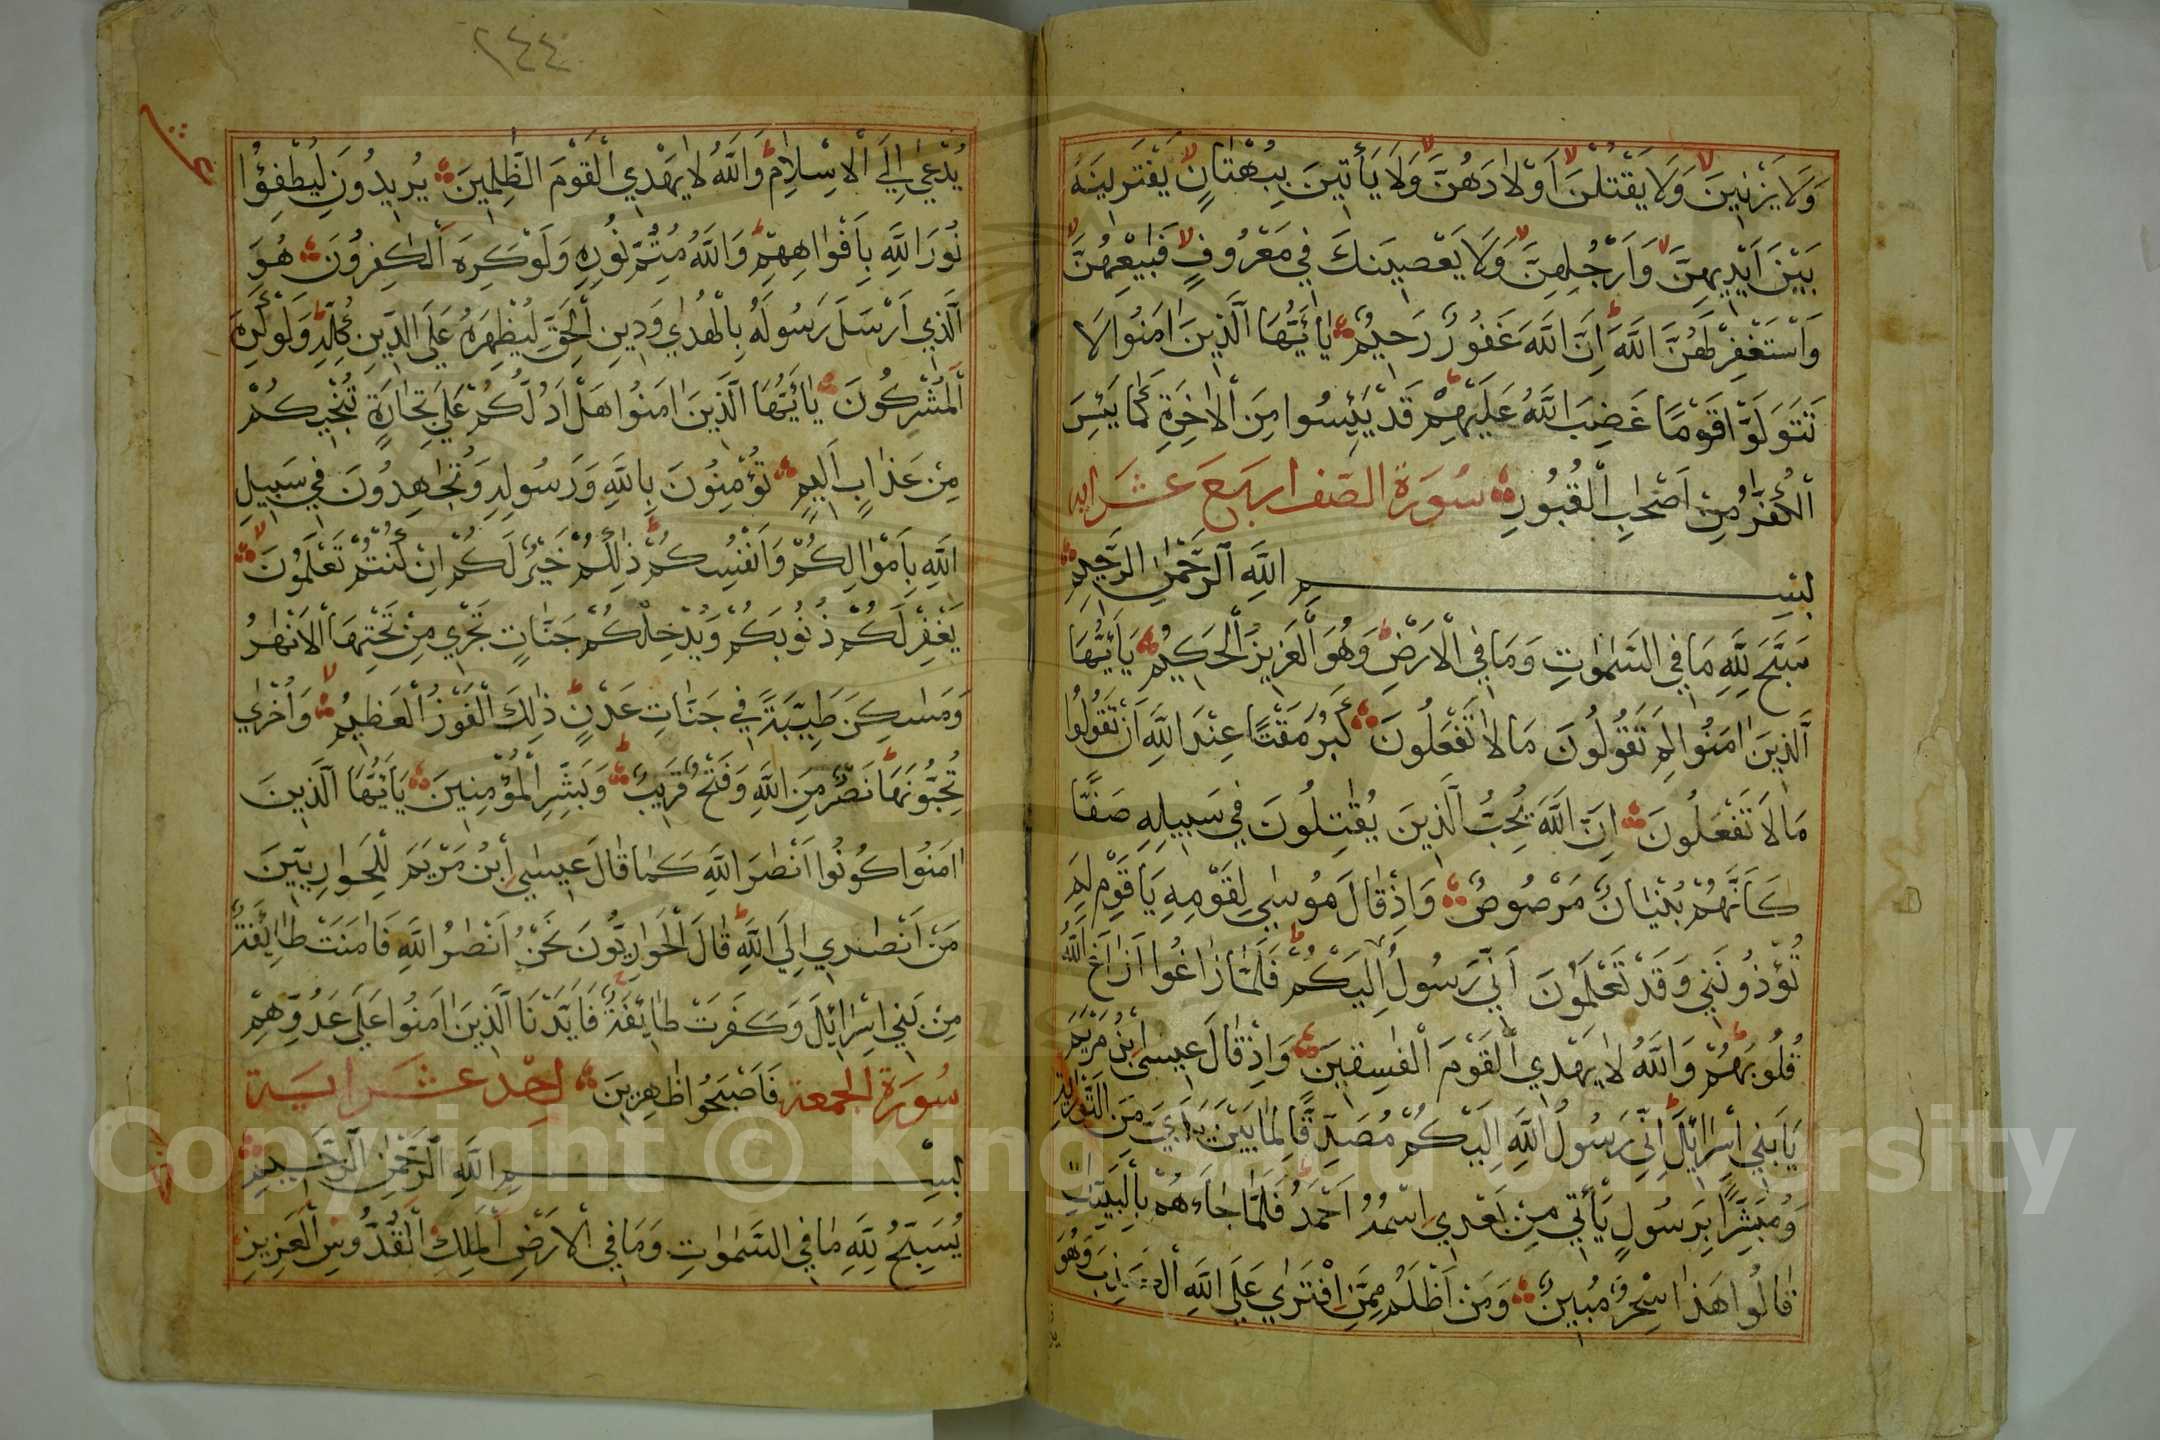 وَلَا يَزْنِينَ وَلَا يَقْتُلْنَ اَوْلَادَهُنَّ وَلَا يَأْتِينَ بِبُهْتَانٍ يَفْتَرِينَهُ
بَيْنَ اَيْدِيهِنَّ وَاَرْجُلِهِنَّ وَلَا يَعْصِينَكَ فِي مَعْرُوفٍ فَبَايِعْهُنَّ
وَاسْتَغْفِرْ لَهُنَّ اللَّهَ اِنَّ اللَّهَ غَفُورٌ رَحِيمٌ يَااَيُّهَا الَّذِينَ اٰمَنُوا لَا
تَتَوَلَّوْا قَوْمًا غَضِبَ اللَّهُ عَلَيْهِمْ قَدْ يَئِسُوا مِنَ الْاٰخِرَةِ كَمَا يَئِسَ
الْكُفَّارُ مِنْ اَصْحَابِ الْقُبُورِ سُورَة الصف اربع عشر اية
بِسْمِ اللَّهِ الرَّحْمٰنِ الرَّحِيمِ
سَبَّحَ لِلَّهِ مَا فِي السَّمٰوَاتِ وَمَا فِي الْاَرْضِ وَهُوَ الْعَزِيزُ الْحَكِيمُ يَااَيُّهَا
الَّذِينَ اٰمَنُوا لِمَ تَقُولُونَ مَا لَا تَفْعَلُونَ كَبُرَ مَقْتًا عِنْدَ اللَّهِ اَنْ تَقُولُوا
مَا لَا تَفْعَلُونَ اِنَّ اللَّهَ يُحِبُّ الَّذِينَ يُقَاتِلُونَ فِي سَبِيلِهِ صَفًّا
كَاَنَّهُمْ بُنْيَانٌ مَرْصُوصٌ وَاِذْ قَالَ مُوسٰى لِقَوْمِهِ يَاقَوْمِ لِمَ
تُؤْذُونَنِي وَقَدْ تَعْلَمُونَ اَنِّي رَسُولُ اِلَيْكُمْ فَلَمَّا زَاغُوا اَزَاغَ اللَّهُ
قُلُوبَهُمْ وَاللَّهُ لَا يَهْدِي الْقَوْمَ الْفَاسِقِينَ وَاِذْ قَالَ عِيسٰى ابْنُ مَرْيَمَ
يَابَنِي اِسْرَائِلَ اِنِّي رَسُولُ اللَّهِ اِلَيْكُمْ مُصَدِّقًا لِمَا بَيْنَ يَدَيَّ مِنَ التَّوْرٰيةِ
وَمُبَشِّرًا بِرَسُولٍ يَأْتِي مِنْ بَعْدِي اسْمُهُ اَحْمَدُ فَلَمَّا جَاءَهُمْ بِالْبَيِّنَاتِ
قَالُوا هٰذَا سِحْرٌ مُبِينٌ وَمَنْ اَظْلَمُ مِمَّنِ افْتَرٰى عَلَى اللَّهِ الْكَذِبَ وَهُوَ
٢٤٤
يُدْعٰى اِلَى الْاِسْلَامِ وَاللَّهُ لَا يَهْدِي الْقَوْمَ الظَّالِمِينَ يُرِيدُونَ لِيُطْفِؤُا
نُورَ اللَّهِ بِاَفْوَاهِهِمْ وَاللَّهُ مُتِمُّ نُورِهِ وَلَوْ كَرِهَ الْكَافِرُونَ هُوَ
الَّذِي اَرْسَلَ رَسُولَهُ بِالْهُدٰى وَدِينِ الْحَقِّ لِيُظْهِرَهُ عَلَى الدِّينِ كُلِّهِ وَلَوْ كَرِهَ
الْمُشْرِكُونَ يَااَيُّهَا الَّذِينَ اٰمَنُوا هَلْ اَدُلُّكُمْ عَلٰى تِجَارَةٍ تُنْجِيكُمْ
مِنْ عَذَابٍ اَلِيمٍ تُؤْمِنُونَ بِاللَّهِ وَرَسُولِهِ وَتُجَاهِدُونَ فِي سَبِيلِ
اللَّهِ بِاَمْوَالِكُمْ وَاَنْفُسِكُمْ ذٰلِكُمْ خَيْرٌ لَكُمْ اِنْ كُنْتُمْ تَعْلَمُونَ
يَغْفِرْ لَكُمْ ذُنُوبَكُمْ وَيُدْخِلْكُمْ جَنَّاتٍ تَجْرِي مِنْ تَحْتِهَا الْاَنْهَارُ
وَمَسَاكِنَ طَيِّبَةً فِي جَنَّاتِ عَدْنٍ ذٰلِكَ الْفَوْزُ الْعَظِيمُ وَاُخْرٰى
تُحِبُّونَهَا نَصْرٌ مِنَ اللَّهِ وَفَتْحٌ قَرِيبٌ وَبَشِّرِ الْمُؤْمِنِينَ يَااَيُّهَا الَّذِينَ
اٰمَنُوا كُونُوا اَنْصَارَ اللَّهِ كَمَا قَالَ عِيسٰى ابْنُ مَرْيَمَ لِلْحَوَارِيِّينَ
مَنْ اَنْصَارِي اِلَى اللَّهِ قَالَ الْحَوَارِيُّونَ نَحْنُ اَنْصَارُ اللَّهِ فَاٰمَنَتْ طَائِفَةٌ
مِنْ بَنِي اِسْرَائِلَ وَكَفَرَتْ طَائِفَةٌ فَاَيَّدْنَا الَّذِينَ اٰمَنُوا عَلٰى عَدُوِّهِمْ
سُورَة الجمعة فَاَصْبَحُوا ظَاهِرِينَ احد عشر اية
بِسْمِ اللَّهِ الرَّحْمٰنِ الرَّحِيمِ
يُسَبِّحُ لِلَّهِ مَا فِي السَّمٰوَاتِ وَمَا فِي الْاَرْضِ الْمَلِكِ الْقُدُّوسِ الْعَزِيزِ
Copyright © King Saud University